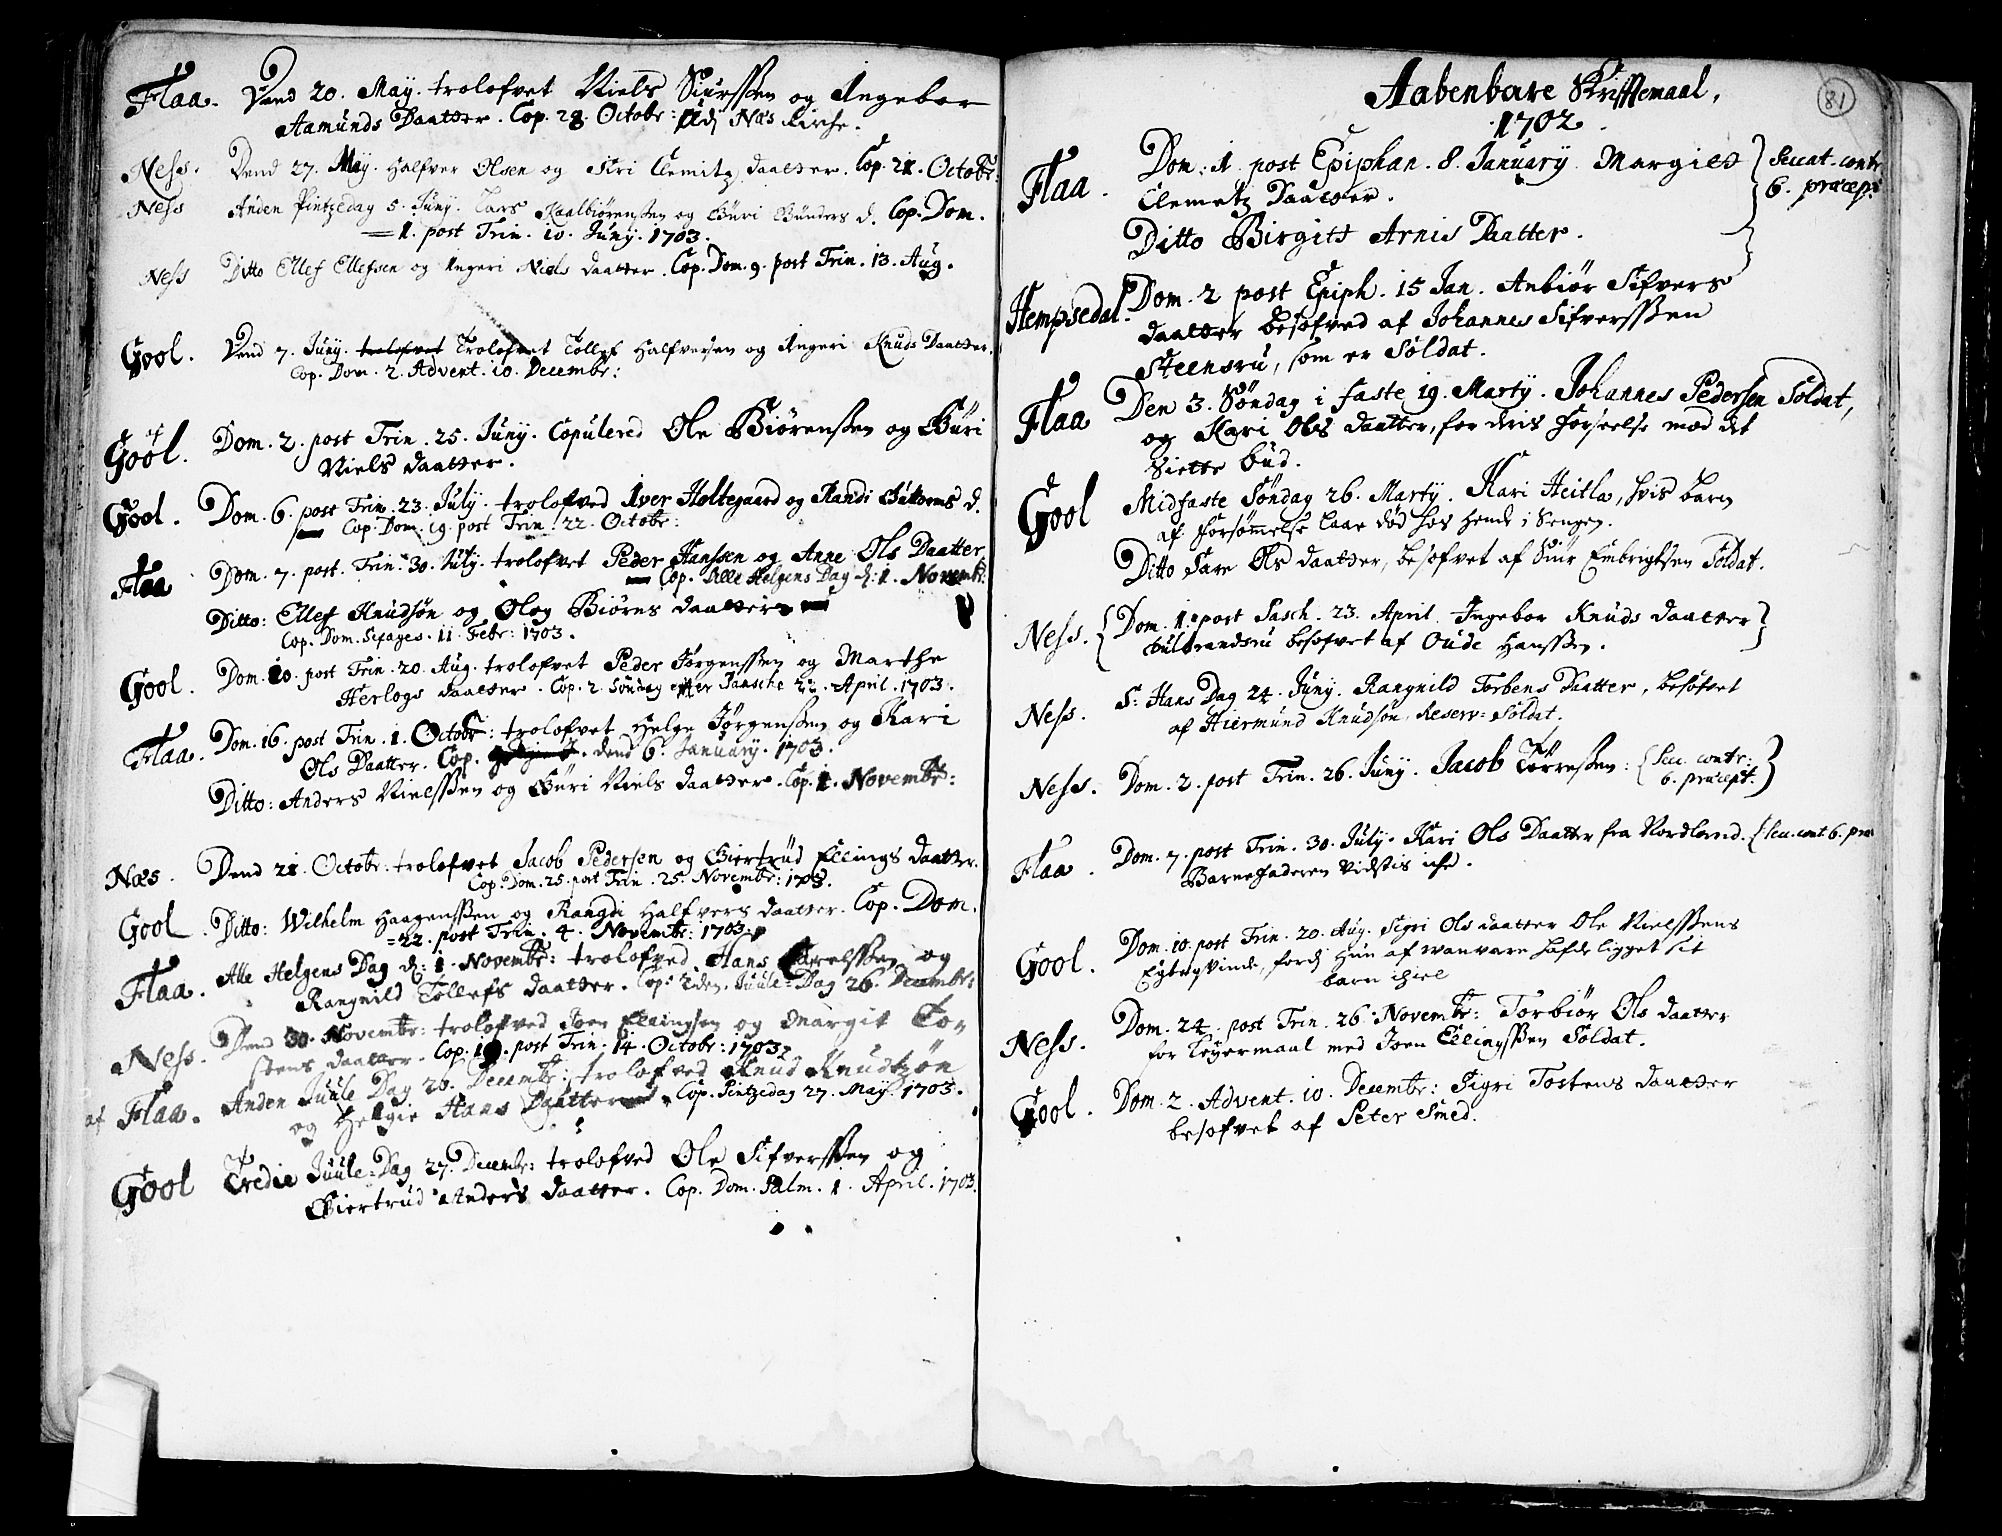 Flaa. Dend 20. May. trolofvet Niels Siurssen og Ingebor
Aamunds Daatter. Cop. 28. Octobr: Udj Næs Kirche.
Ness. Dend 27. May. Halfver Olsen og Siri Clemitz daatter. Cop. 21. Octobr:
Ness Anden Pintzedag 5. Juny. Lars Kaalbiørenssen og Guri Gunders d. Cop. Dom.
= 1. post Trin. 10. Juny. 1703.
Ness Ditto Ellef Ellefsen og Ingeri Niels daatter. Cop. Dom. 9. post Trin. 13. Aug.
Gool. Dend 7. Juny. trolofvet Trolofvet Tollef Halfversen og Ingeri Knuds Daatter.
Cop. Dom. 2. Advent. 10. Decembr:
Gool. Dom. 2. post Trin. 25. Juny. Copulered Ole Biørenssen og Guri
Niels daatter.
Gool. Dom. 6. post Trin. 23. July. trolofved Iver Holtegaard og Randi Guttorms d.
Cop. Dom. 19. post Trin. 22. Octobr:
Flaa Dom. 7. post. Trin. 30. July. trolofvet Peder Hanssen og Anne Ols Daatter
Cop. Alle Helgens Dag d: 1. Novembr:
Ditto: Ellef Knudsøn og Olog Biørns daatter
Cop. Dom. Sexages. 11. Febr: 1703.
Gool. Dom. 10. post Trin. 20. Aug. trolofvet Peder Jørgenssen og Marthe
Herlogs daatter. Cop. 2. Søndag efter Paasche 22. April. 1703.
Flaa. Dom. 16. post Trin. 1. Octobr: trolofvet Helge Jørgenssen og Kari
Ols Daatter. Cop. dend 6. January. 1703.
Ditto: Anders Nielssen og Guri Niels daatter. Cop. 1. Novembr:
Næs. Dend 21. Octobr: trolofvet Jacob Pedersen og Giertrud Ellings daatter.
Cop. Dom. 25. post Trin. 25. Novembr: 1703.
Gool. Ditto: Wilhelm Haagenssen og Rangdi Halfvers daatter. Cop. Dom.
= 22. post Trin. 4. Novembr: 1703.
Flaa. Alle Helgens Dag d: 1. Novembr: trolofved Hans Carelssen og
Rangnild Tollefs daatter. Cop. 2den. Juule-Dag 26. Decembr:
Ness. Dend 30. Novembr: trolofved Joen Ellingsen og Margit To-
stens daatter. Cop. post Trin. 14. Octobr: 1703
af Flaa. Anden Juule Dag 26. Decembr: trolofved Knud Knudtzøn
og Helgie Haans Daatter. Cop. Pintzedag 27. May. 1703.
Gool Tredie Juule-Dag 27. Decembr: trolofved Ole Sifverssen og
Giertrud Anders daatter. Cop. Dom. Palm. 1. April. 1703.
81
Aabenbare Skrifftemaal,
1702.
Flaa. Dom: 1. post Epiphan. 8. January. Margied } Peccat. contr
Clemetz Daatter. 6. præcept
Ditto Birgitt Arnis Daatter.
Hempsedal. Dom. 2 post Epiph. 15 Jan. Anbiør Sifvers
daatter besofved af Johannes Sifverssen
Steensru, som er Soldat.
Flaa Den 3. Søndag i Faste 19. Marty. Johannes Pedersen Soldat,
og Kari Ols daatter, for deris forseelse mod det
Siette bud.
Gool Midfaste Søndag 26. Marty. Kari Heitla, hvis barn
af forsømmelse laae død hos hende i Sengen.
Ditto Sare Ols daatter, besofvet af Siur Embrigtsen Soldat.
Ness. { Dom. 1. post Pasch. 23. April. Ingebor Knuds daatter }
Gulbrandsru besofvet af Oude Hanssen.
Ness. S: Hans Dag 24. Juny. Rangnild Torbens Daatter, besofvet
af Hiermund Knudsøn, Reserv: Soldat.
Ness. Dom. 2. post Trin. 26. Juny. Jacob Torressen: { Pec. contr:
6. præcept. }
Flaa. Dom. 7. post Trin. 30. July. Kari Ols Daatter fra Nordland. { Pec. cont. 6. præ
Barnefaderen vidstis iche.
Gool. Dom. 10. post Trin. 20. Aug. Sigri Ols daatter Ole Nielssens
Egteqvinde, fordj hun af wanvare hafde ligget sit
barn ihiel
Ness. Dom. 24. post Trin. 26 Novembr: Torbiør Ols daatter
for Leyermaal med Joen Ellingssen Soldat.
Gool. Dom. 2. Advent. 10. Decembr: Sigri Tostens daatter
besofvet af Peter Smed.